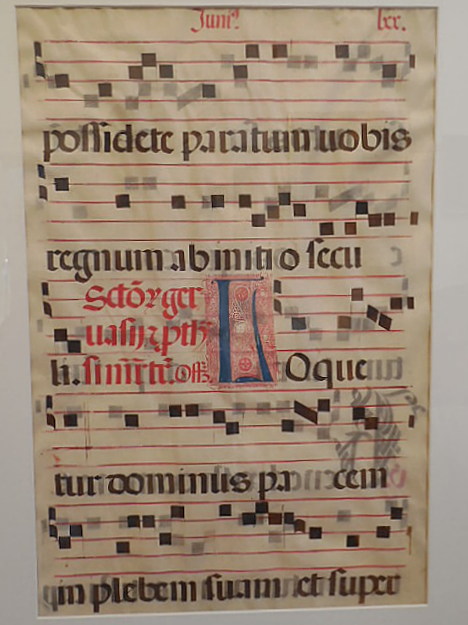 Junii lxx.
possidete paratum uobis
regnum ab initio secu
Sctōꝝ ger
uasii ⁊ pth
li. si mr̄tū. Off. LOque
tur dominus pacem
in plebem suam et super